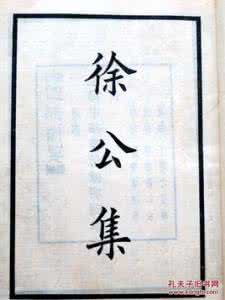 徐公集
孔夫子旧书网